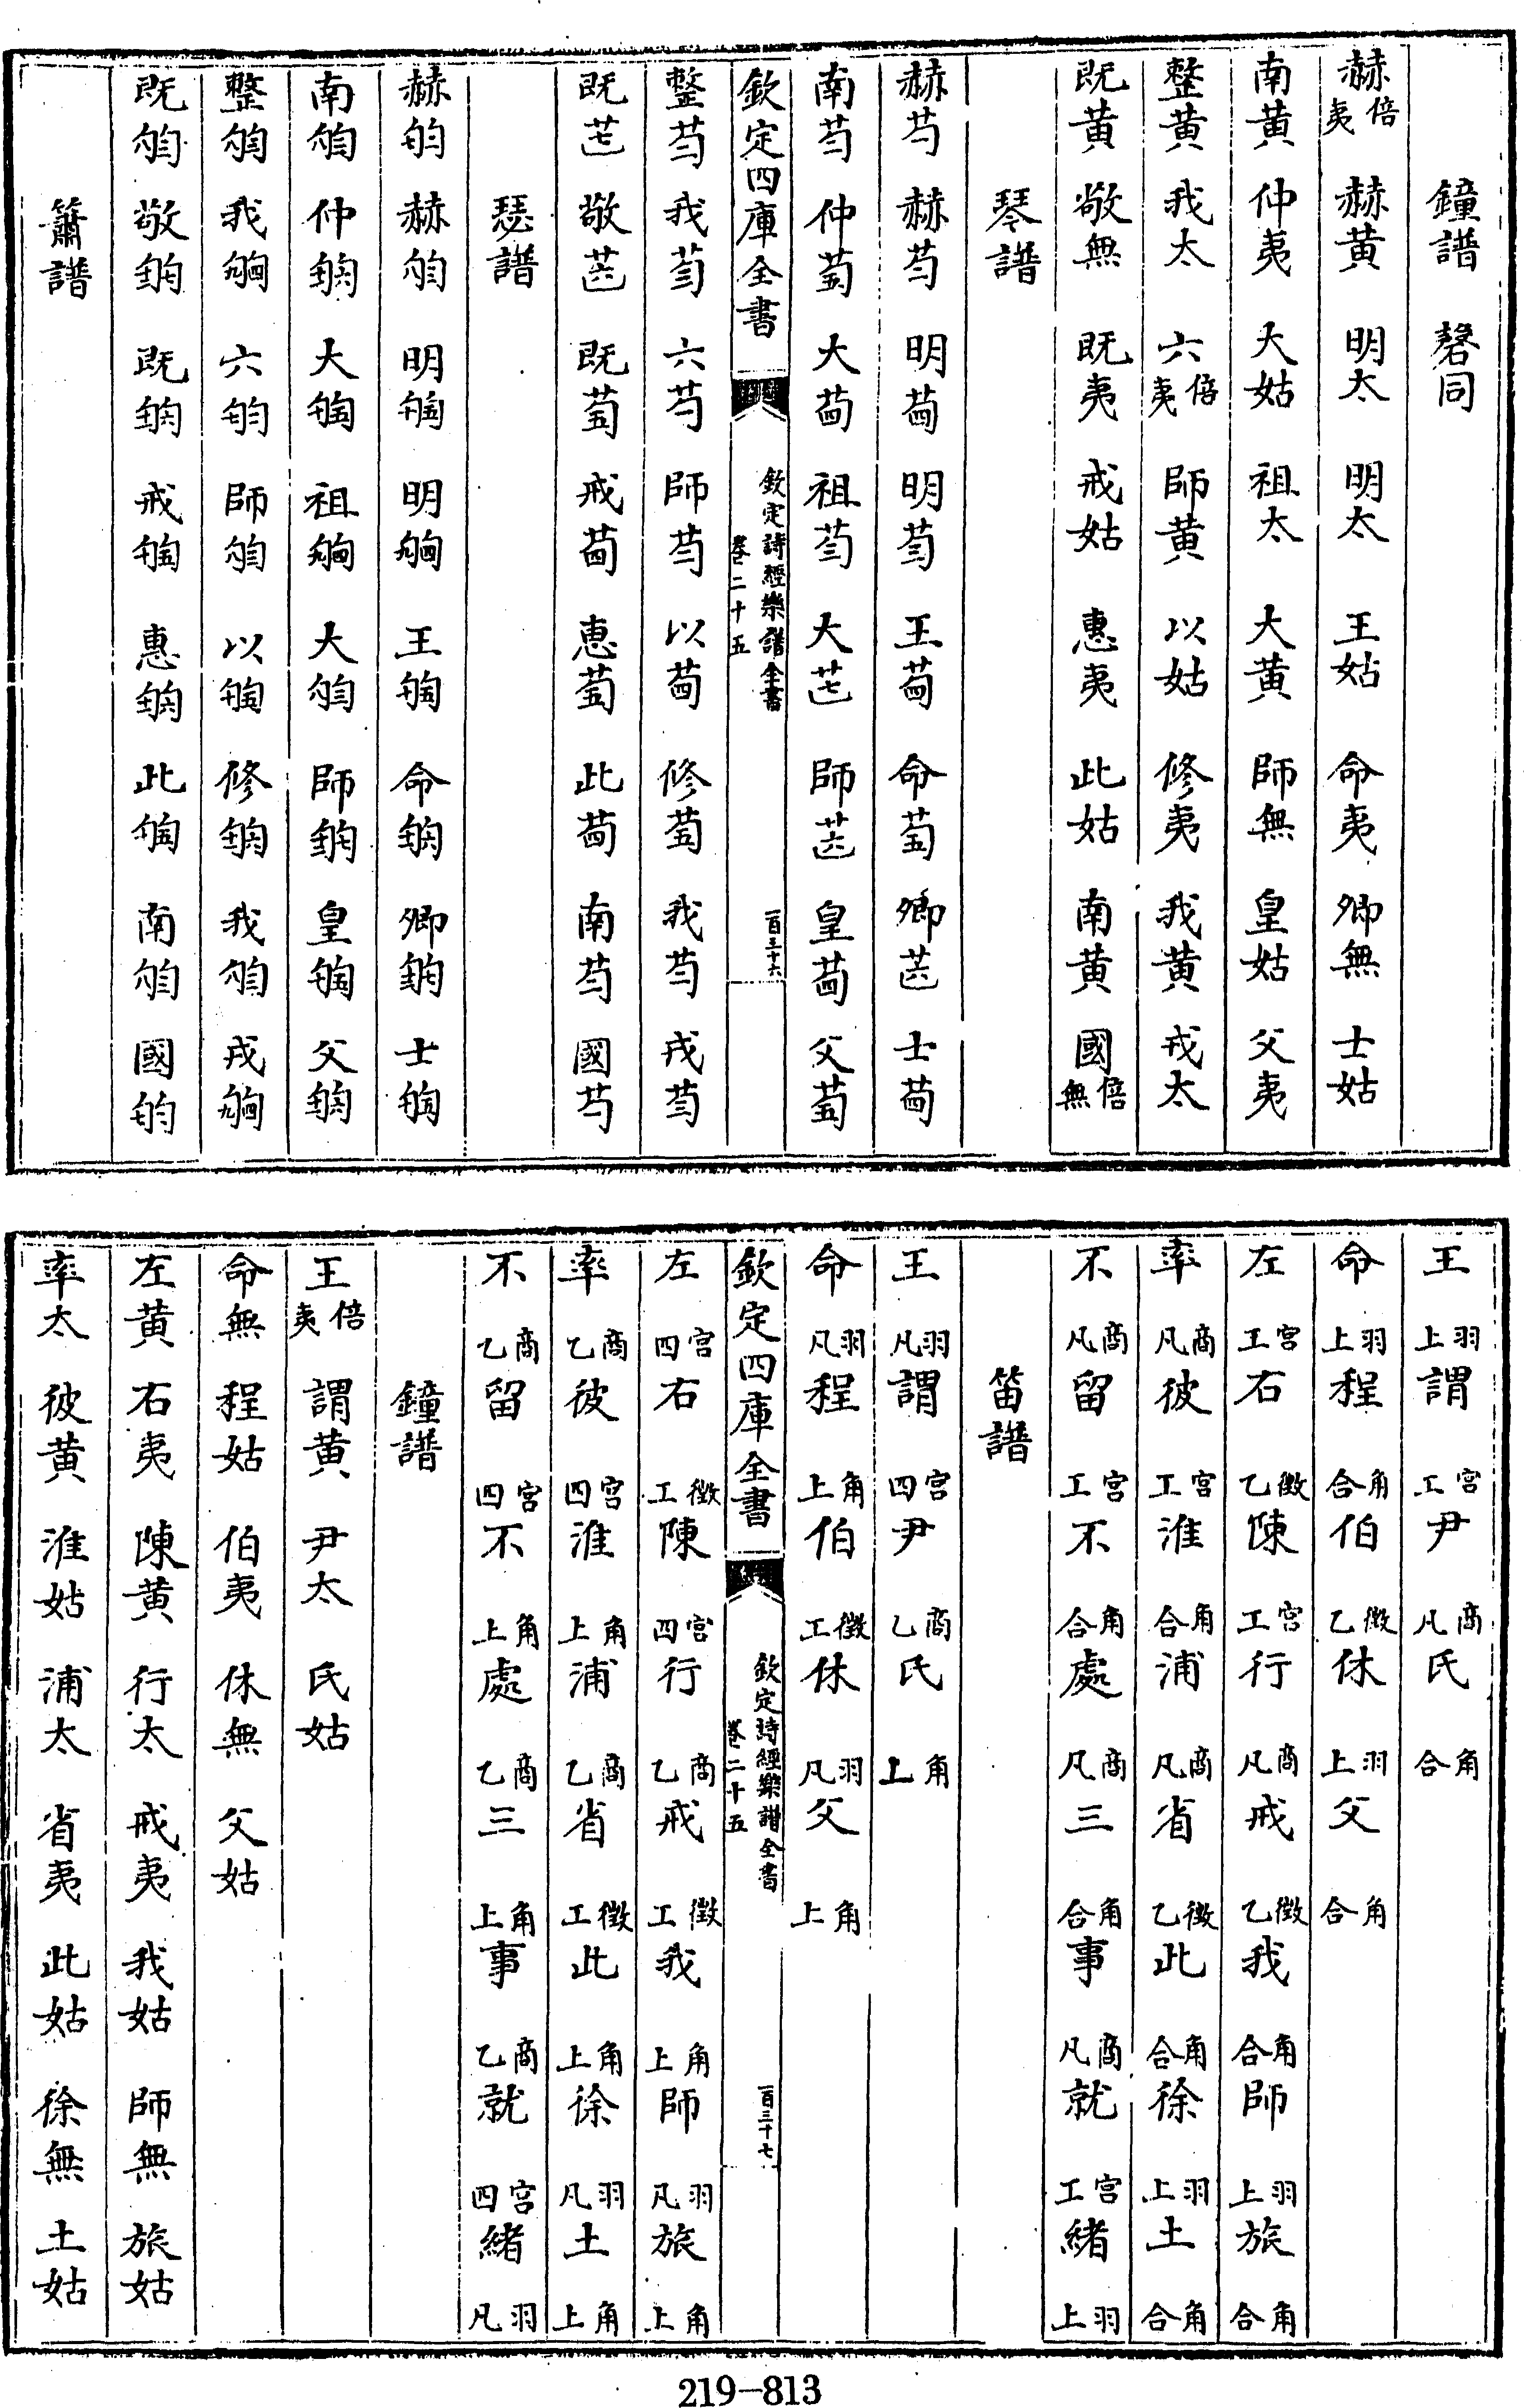 鐘譜 磬同
赫倍夷 赫黄 明太 明太 王姑 命夷 卿無 士姑
南黄 仲夷 大姑 祖太 大黄 師無 皇姑 父夷
整黄 我太 六倍夷 師黄 以姑 修夷 我黄 戎太
既黄 敬無 既夷 戒姑 惠夷 此姑 南黄 國倍無
琴譜
赫 赫 明 明 王 命 卿 士
南 仲 大 祖 大 師 皇 父
欽定四庫全書 欽定詩經樂譜全書 卷二十五 一百三十六
整 我 六 師 以 修 我 戎
既 敬 既 戒 惠 此 南 國
瑟譜
赫 赫 明 明 王 命 卿 士
南 仲 大 祖 大 師 皇 父
整 我 六 師 以 修 我 戎
既 敬 既 戒 惠 此 南 國
簫譜
王 羽上 謂 宫工 尹 商凡 氏 角合
命 羽上 程 角合 伯 徵乙 休 羽上 父 角合
左 宫工 右 徵乙 陳 宫工 行 商凡 戒 徵乙 我 角合 師 羽上 旅 角合
率 商凡 彼 宫工 淮 角合 浦 商凡 省 徵乙 此 角合 徐 羽上 土 角合
不 商凡 留 宫工 不 角合 處 商凡 三 角合 事 商凡 就 宫工 緒 羽上
笛譜
王 羽凡 謂 宫四 尹 商乙 氏 角上
命 羽凡 程 角上 伯 徵工 休 羽凡 父 角上
欽定四庫全書 欽定詩經樂譜全書 卷二十五 一百三十七
左 宫四 右 徵工 陳 宫四 行 商乙 戒 徵工 我 角上 師 羽凡 旅 角上
率 商乙 彼 宫四 淮 角上 浦 商乙 省 徵工 此 角上 徐 羽凡 土 角上
不 商乙 留 宫四 不 角上 處 商乙 三 角上 事 商乙 就 宫四 緒 羽凡
鐘譜
王倍夷 謂黄 尹太 氏姑
命無 程姑 伯夷 休無 父姑
左黄 右夷 陳黄 行太 戒夷 我姑 師無 旅姑
率太 彼黄 淮姑 浦太 省夷 此姑 徐無 土姑
219-813